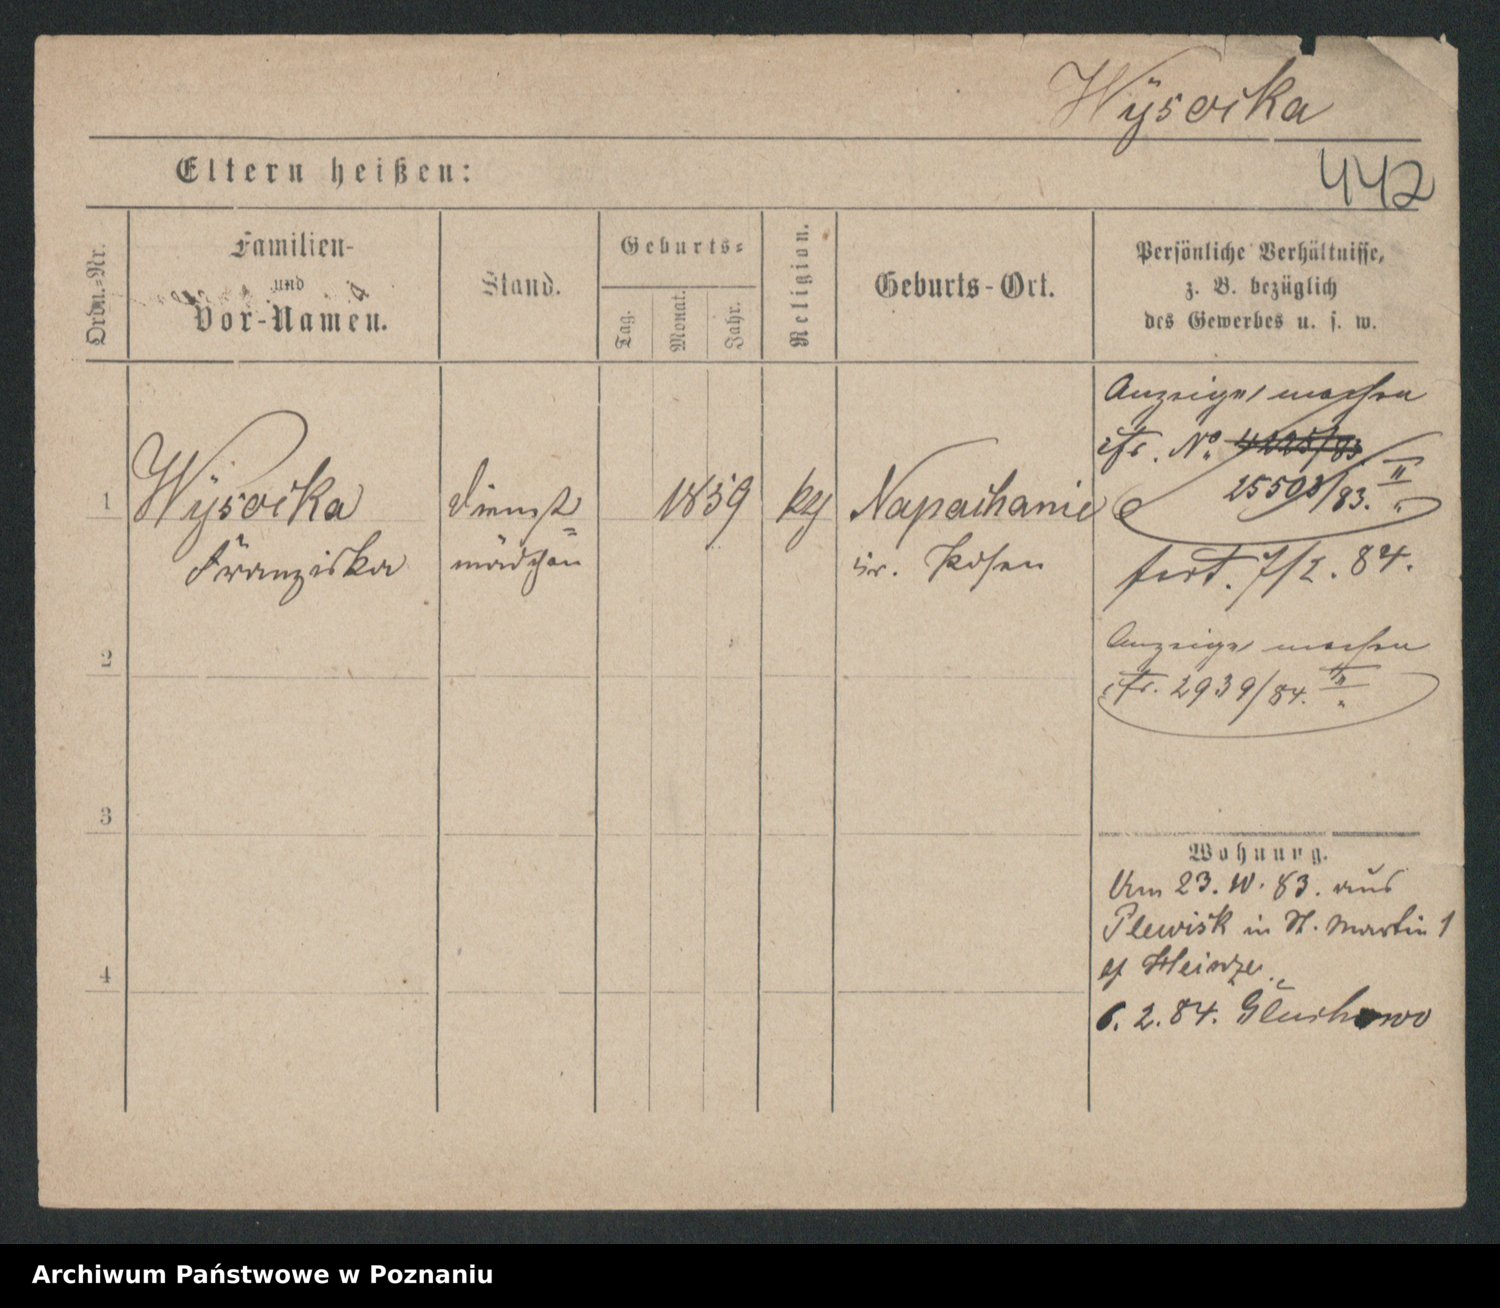 Wÿsocka
442
Eltern heißen:
Ordn.-Nr.
Familien-
und
Vor-Namen.
Stand.
Geburts-
Tag.
Monat.
Jahr.
Religion.
Geburts-Ort.
Persönliche Verhältnisse,
z. B. bezüglich
des Gewerbes u. s. w.
1
Wÿsocka
Franziska
Dienst=
mädchen
1859
ky
Napachanie
Kr. Posen
Anzeige machen
cfr. No. 4225/83
25503/83. II
fort. 7/2. 84.
Anzeige machen
cfr. 2939/84. II
2
3
4
Wohnung.
Am 23. 10. 83. aus
Plewisk in St. Martin 1
Heinze.
6. 2. 84. Gluchowo
Archiwum Państwowe w Poznaniu